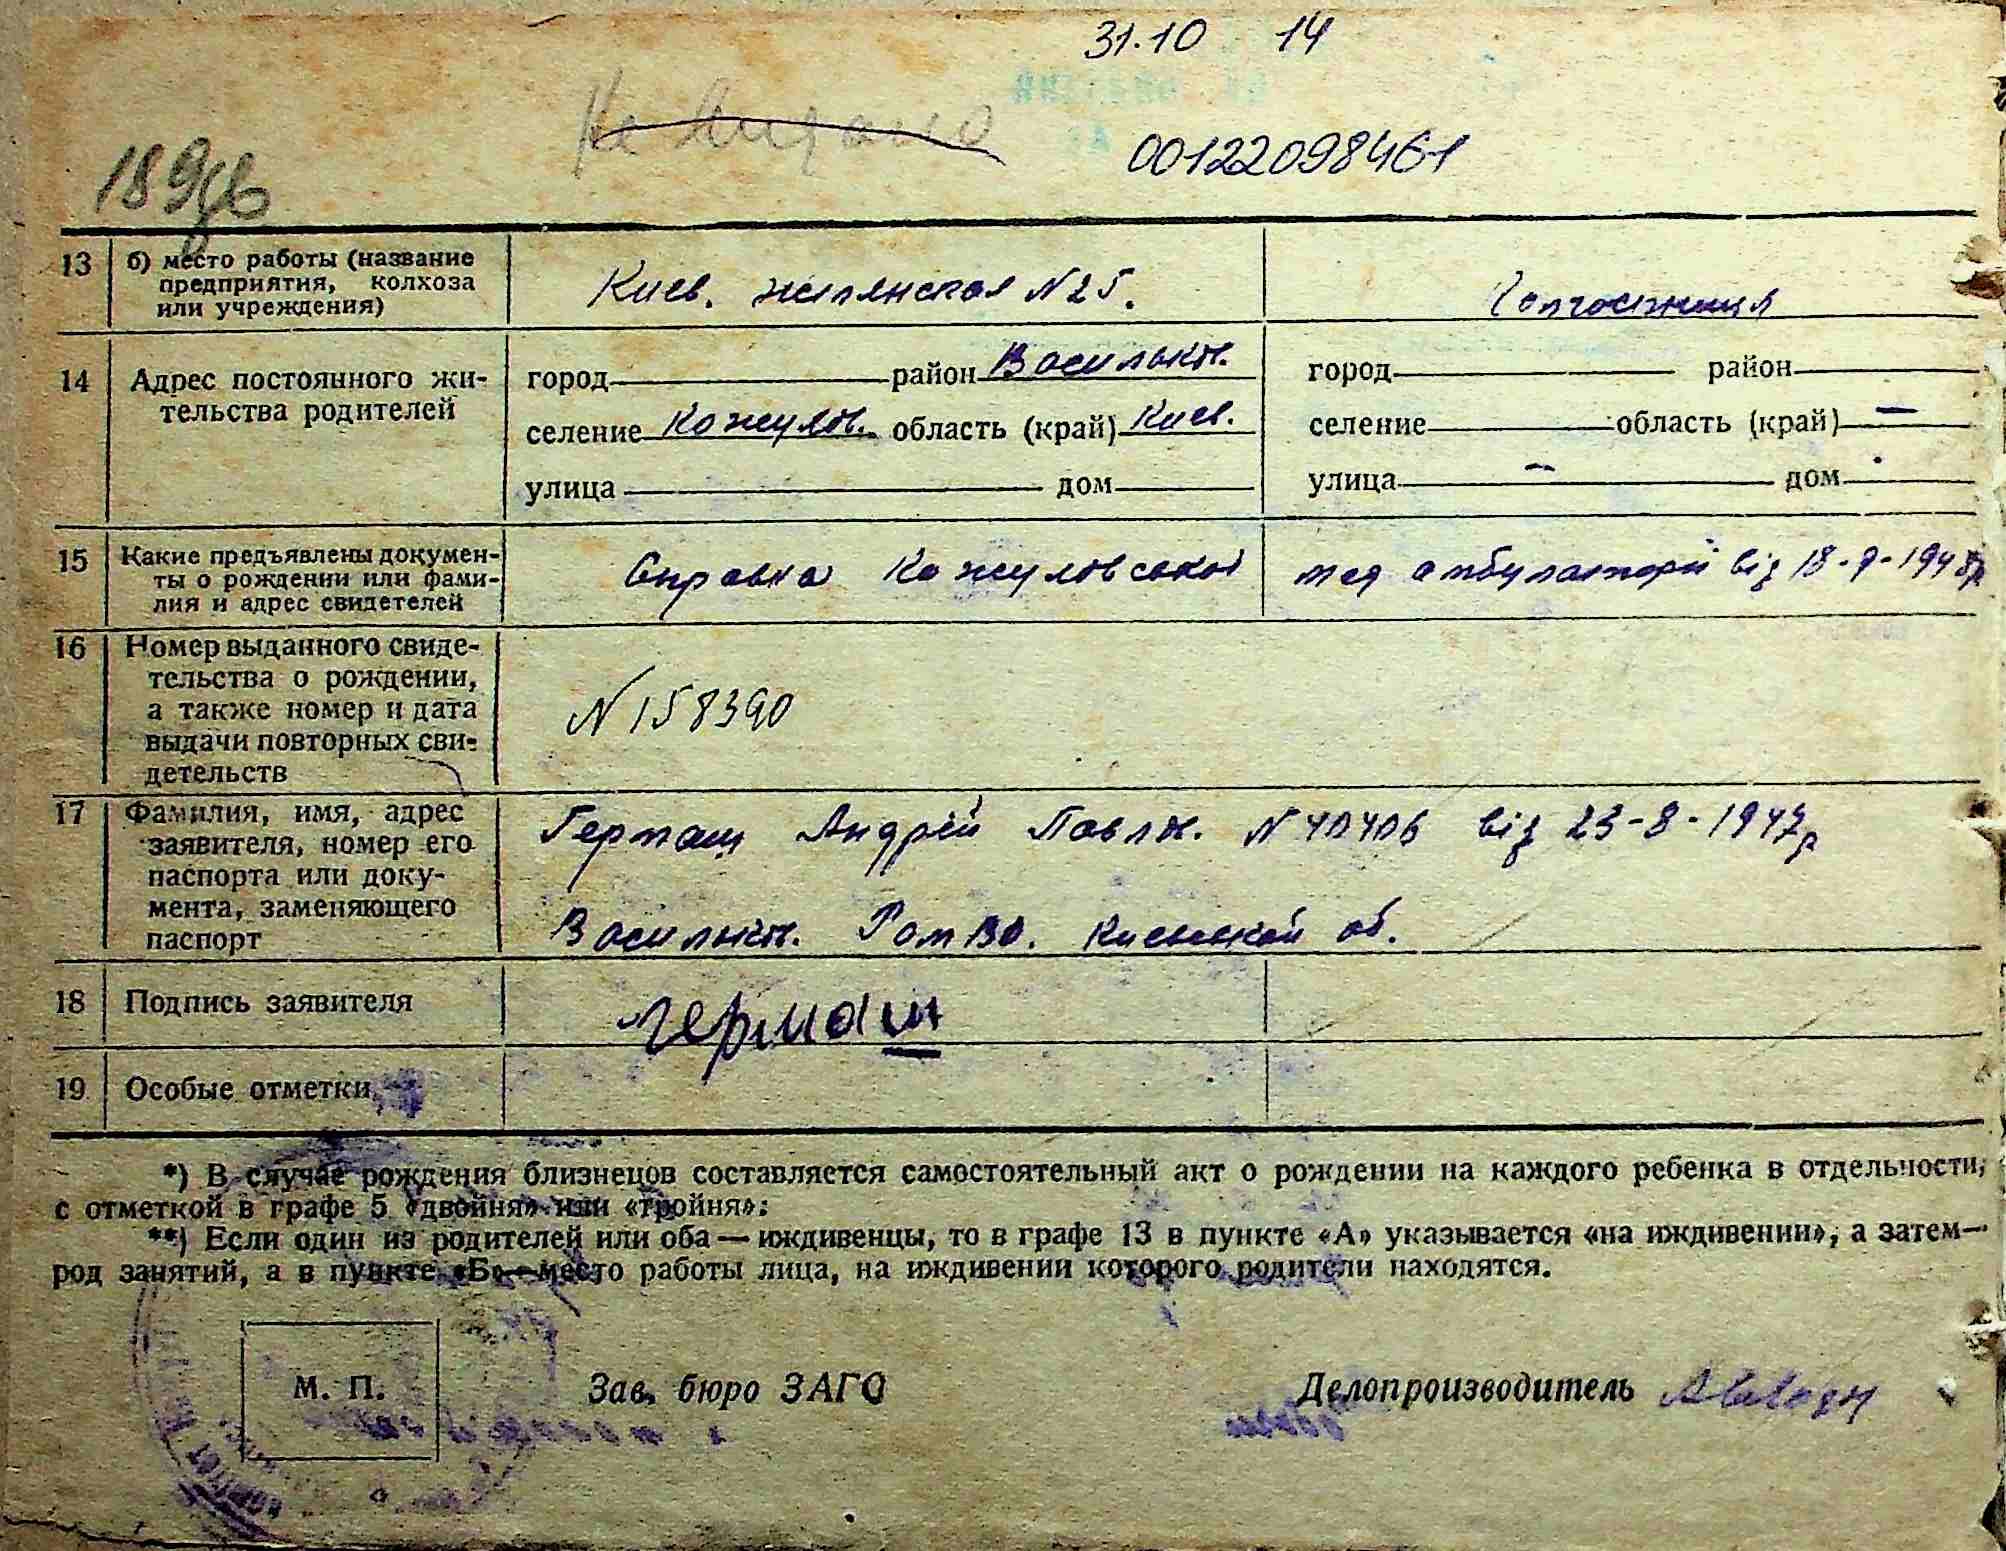 31.10 14
00122098461
13 б) место работы (название Киев. жилянская №25.
предприятия, колхоза
или учреждения)
14 Адрес постоянного жи- город район Васильк. город район
тельства родителей селение Кожухов. область (край) Киев. селение область (край) —
улица дом улица — дом
15 Какие предъявлены докумен- Справка Кожуховської мед амбулаторії від 18-9-1948р
ты о рождении или фами-
лия и адрес свидетелей
16 Номер выданного свиде-
тельства о рождении,
а также номер и дата №158390
выдачи повторных сви-
детельств
17 Фамилия, имя, адрес Гермаш Андрій Павл. від 23-8-1947р
заявителя, номер его
паспорта или доку-
мента, заменяющего Васильк. Киевской об.
паспорт
18 Подпись заявителя Гермаш
19 Особые отметки
*) В случае рождения близнецов составляется самостоятельный акт о рождении на каждого ребенка в отдельности,
с отметкой в графе 5 «двойня» или «тройня».
**) Если один из родителей или оба — иждивенцы, то в графе 13 в пункте «А» указывается «на иждивении», а затем—
род занятий, а в пункте «Б»—место работы лица, на иждивении которого родители находятся.
М. П. Зав. бюро ЗАГС Делопроизводитель